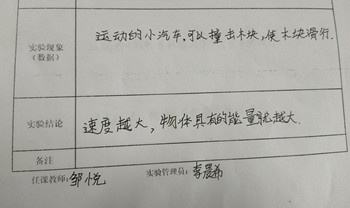 实验现象
(数据)
运动的小汽车,可以撞击木块,使木块滑行.
实验结论
速度越大,物体具有的能量就越大.
备注
任课教师:邹悦
实验管理员:李晨希